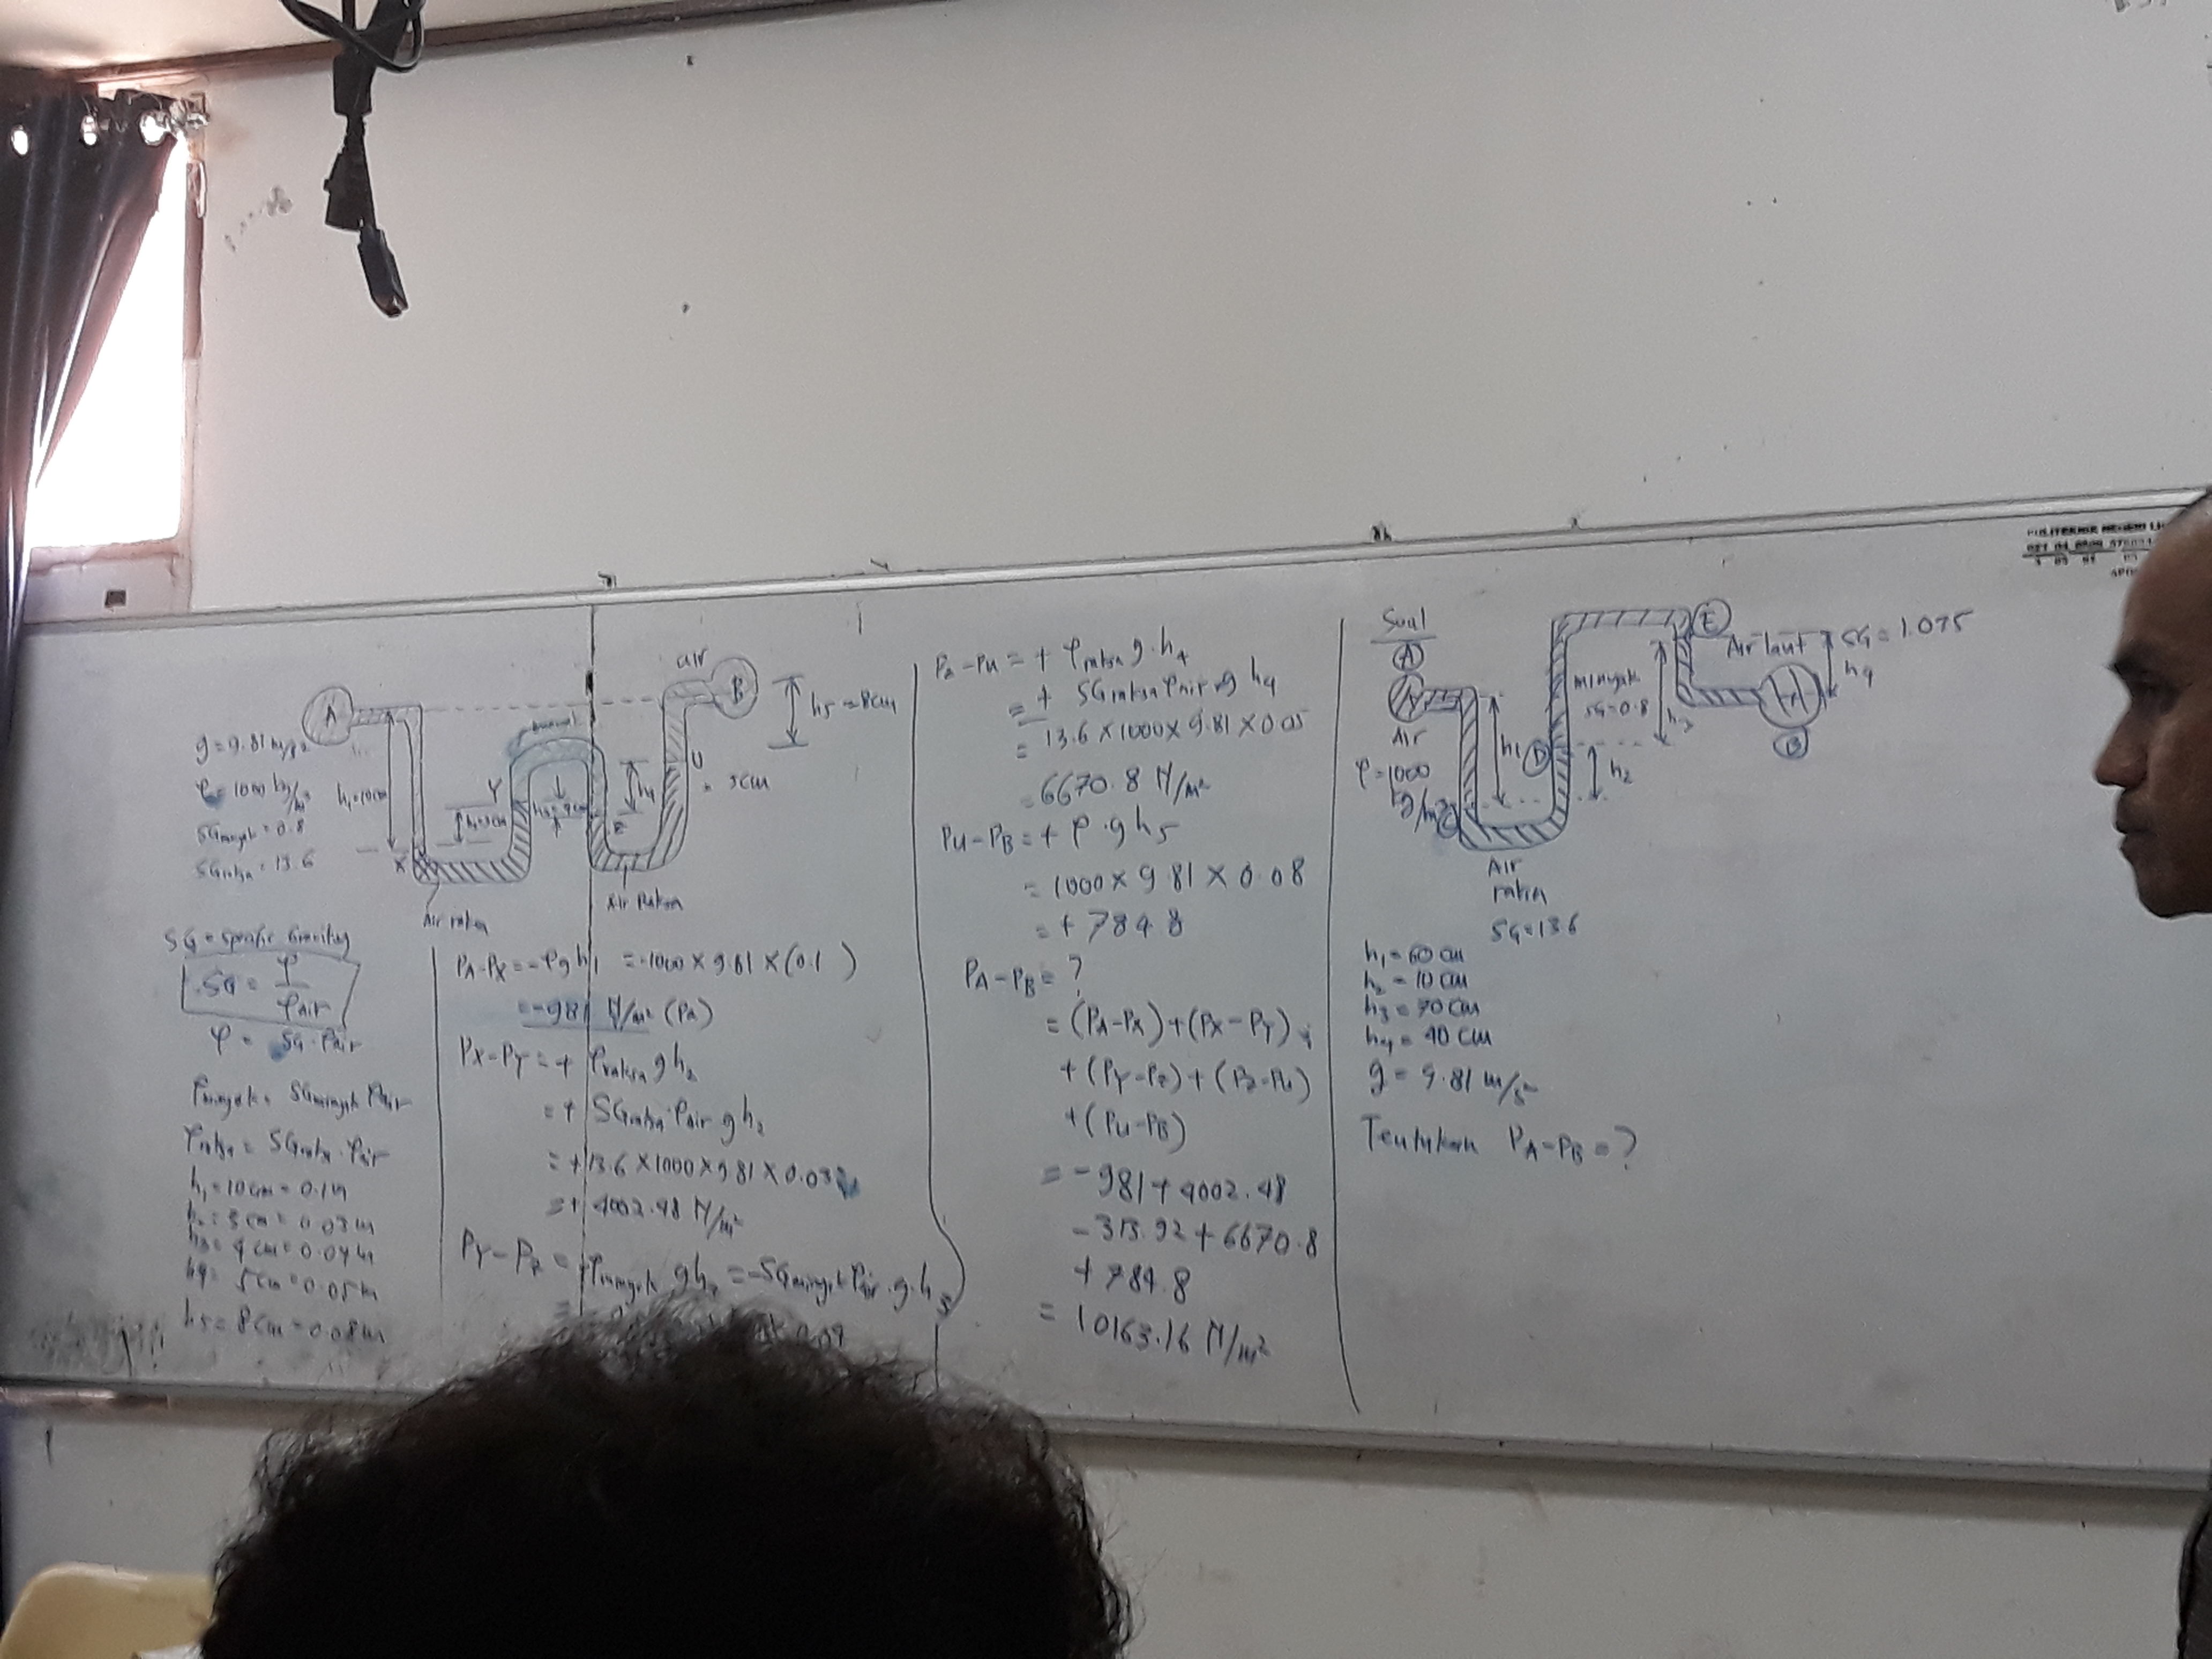 A
air
B
h5 = 8cm
g = 9.81 m/s²
φ = 1000 kg/m³
SGminyak = 0.8
SGraksa = 13.6
h1=10cm
X
Y
h2=3cm
h4
U
= 5cm
Air raksa
Air Raksa
SG = Spesific Gravity
SG = φ / φAir
φ = SG · φAir
φminyak = SGminyak φair
φraksa = SGraksa · φair
h1 = 10 cm = 0.1 m
h2 = 3 cm = 0.03 m
h3 = 4 cm = 0.04 m
h4 = 5 cm = 0.05 m
h5 = 8 cm = 0.08 m
PA-PX = -φgh1 = -1000 × 9.81 × (0.1)
= -981 N/m² (Pa)
PX-PY = + φraksa gh2
= + SGraksa φair gh2
= + 13.6 × 1000 × 9.81 × 0.03
= + 4002.48 N/m²
PY-PZ = -φminyak gh3 = -SGminyak φair · g · h3
PZ-PU = + φraksa g · h4
= + SGraksa φair g h4
= 13.6 × 1000 × 9.81 × 0.05
= 6670.8 N/m²
PU-PB = + φ · g h5
= 1000 × 9.81 × 0.08
= + 784.8
PA-PB = ?
= (PA-PX)+(PX-PY)
+ (PY-PZ)+(PZ-PU)
+(PU-PB)
= -981 + 4002.48
- 313.92 + 6670.8
+ 784.8
= 10163.16 N/m²
Soal
A
Air
φ=1000
kg/m³
C
h1
D
h2
minyak
SG=0.8
h3
E
Air laut
SG = 1.075
h4
B
Air
raksa
SG=13.6
h1 = 60 cm
h2 = 10 cm
h3 = 70 cm
h4 = 40 cm
g = 9.81 m/s²
Tentukan PA-PB = ?
POLITEKNIK NEGERI